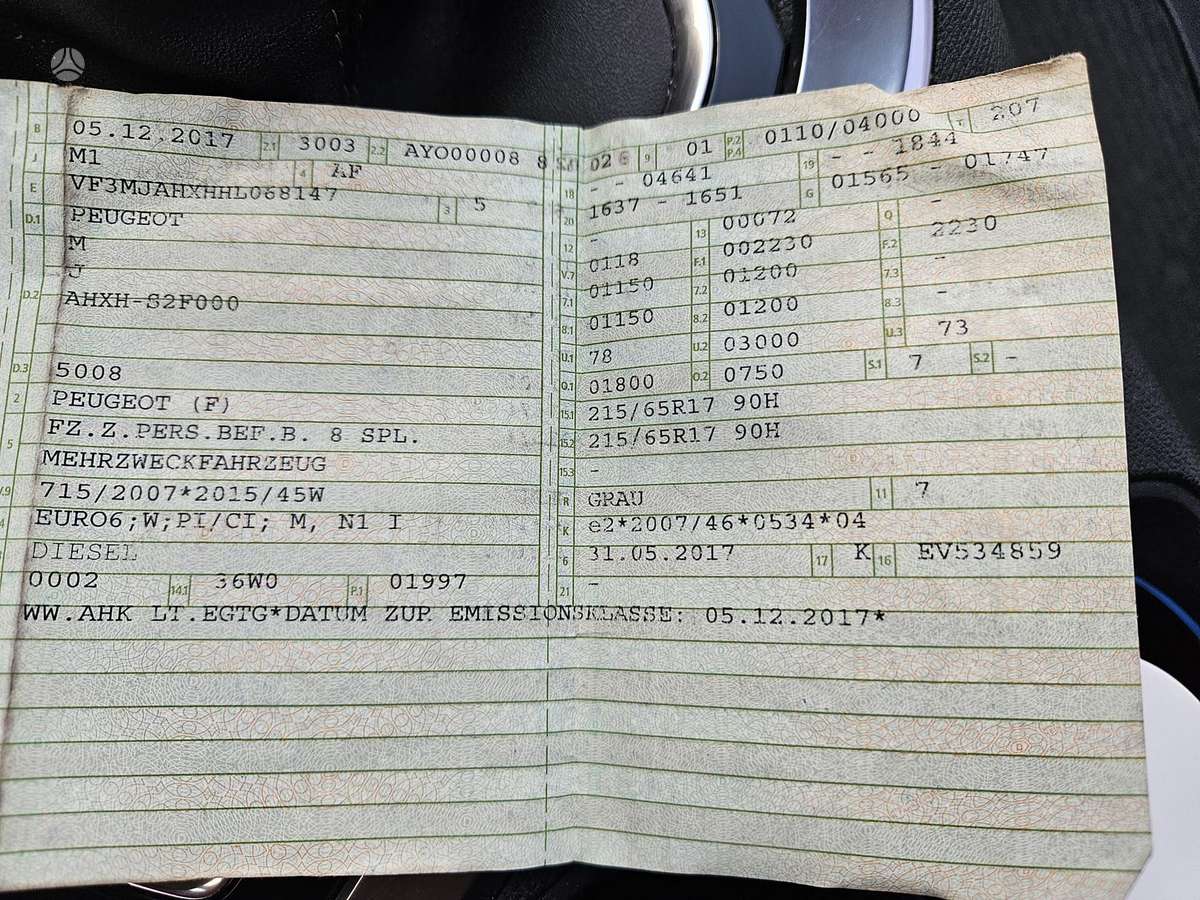 B 05.12.2017 2.1 3003 2.2 AYO00008 8
J M1 4 AF
E VF3MJAHXHHL068147 3 5
D.1 PEUGEOT
M
J
D.2 AHXH-S2F000
D.3 5008
2 PEUGEOT (F)
FZ.Z.PERS.BEF.B. 8 SPL.
5 MEHRZWECKFAHRZEUG
V.9 715/2007*2015/45W
EURO6;W;PI/CI; M, N1 I
DIESEL
0002 14.1 36W0 P.1 01997
WW.AHK LT.EGTG*DATUM ZUR EMISSIONSKLASSE: 05.12.2017*
9 01 P.2 P.4 0110/04000 T 207
18 - - 04641 19 - - 1844
20 1637 - 1651 G 01565 - 01747
12 - 13 00072 Q -
V.7 0118 F.1 002230 F.2 2230
7.1 01150 7.2 01200 7.3 -
8.1 01150 8.2 01200 8.3 -
U.1 78 U.2 03000 U.3 73
O.1 01800 O.2 0750 S.1 7 S.2 -
15.1 215/65R17 90H
15.2 215/65R17 90H
15.3 -
R GRAU 11 7
K e2*2007/46*0534*04
6 31.05.2017 17 K 16 EV534859
21 -